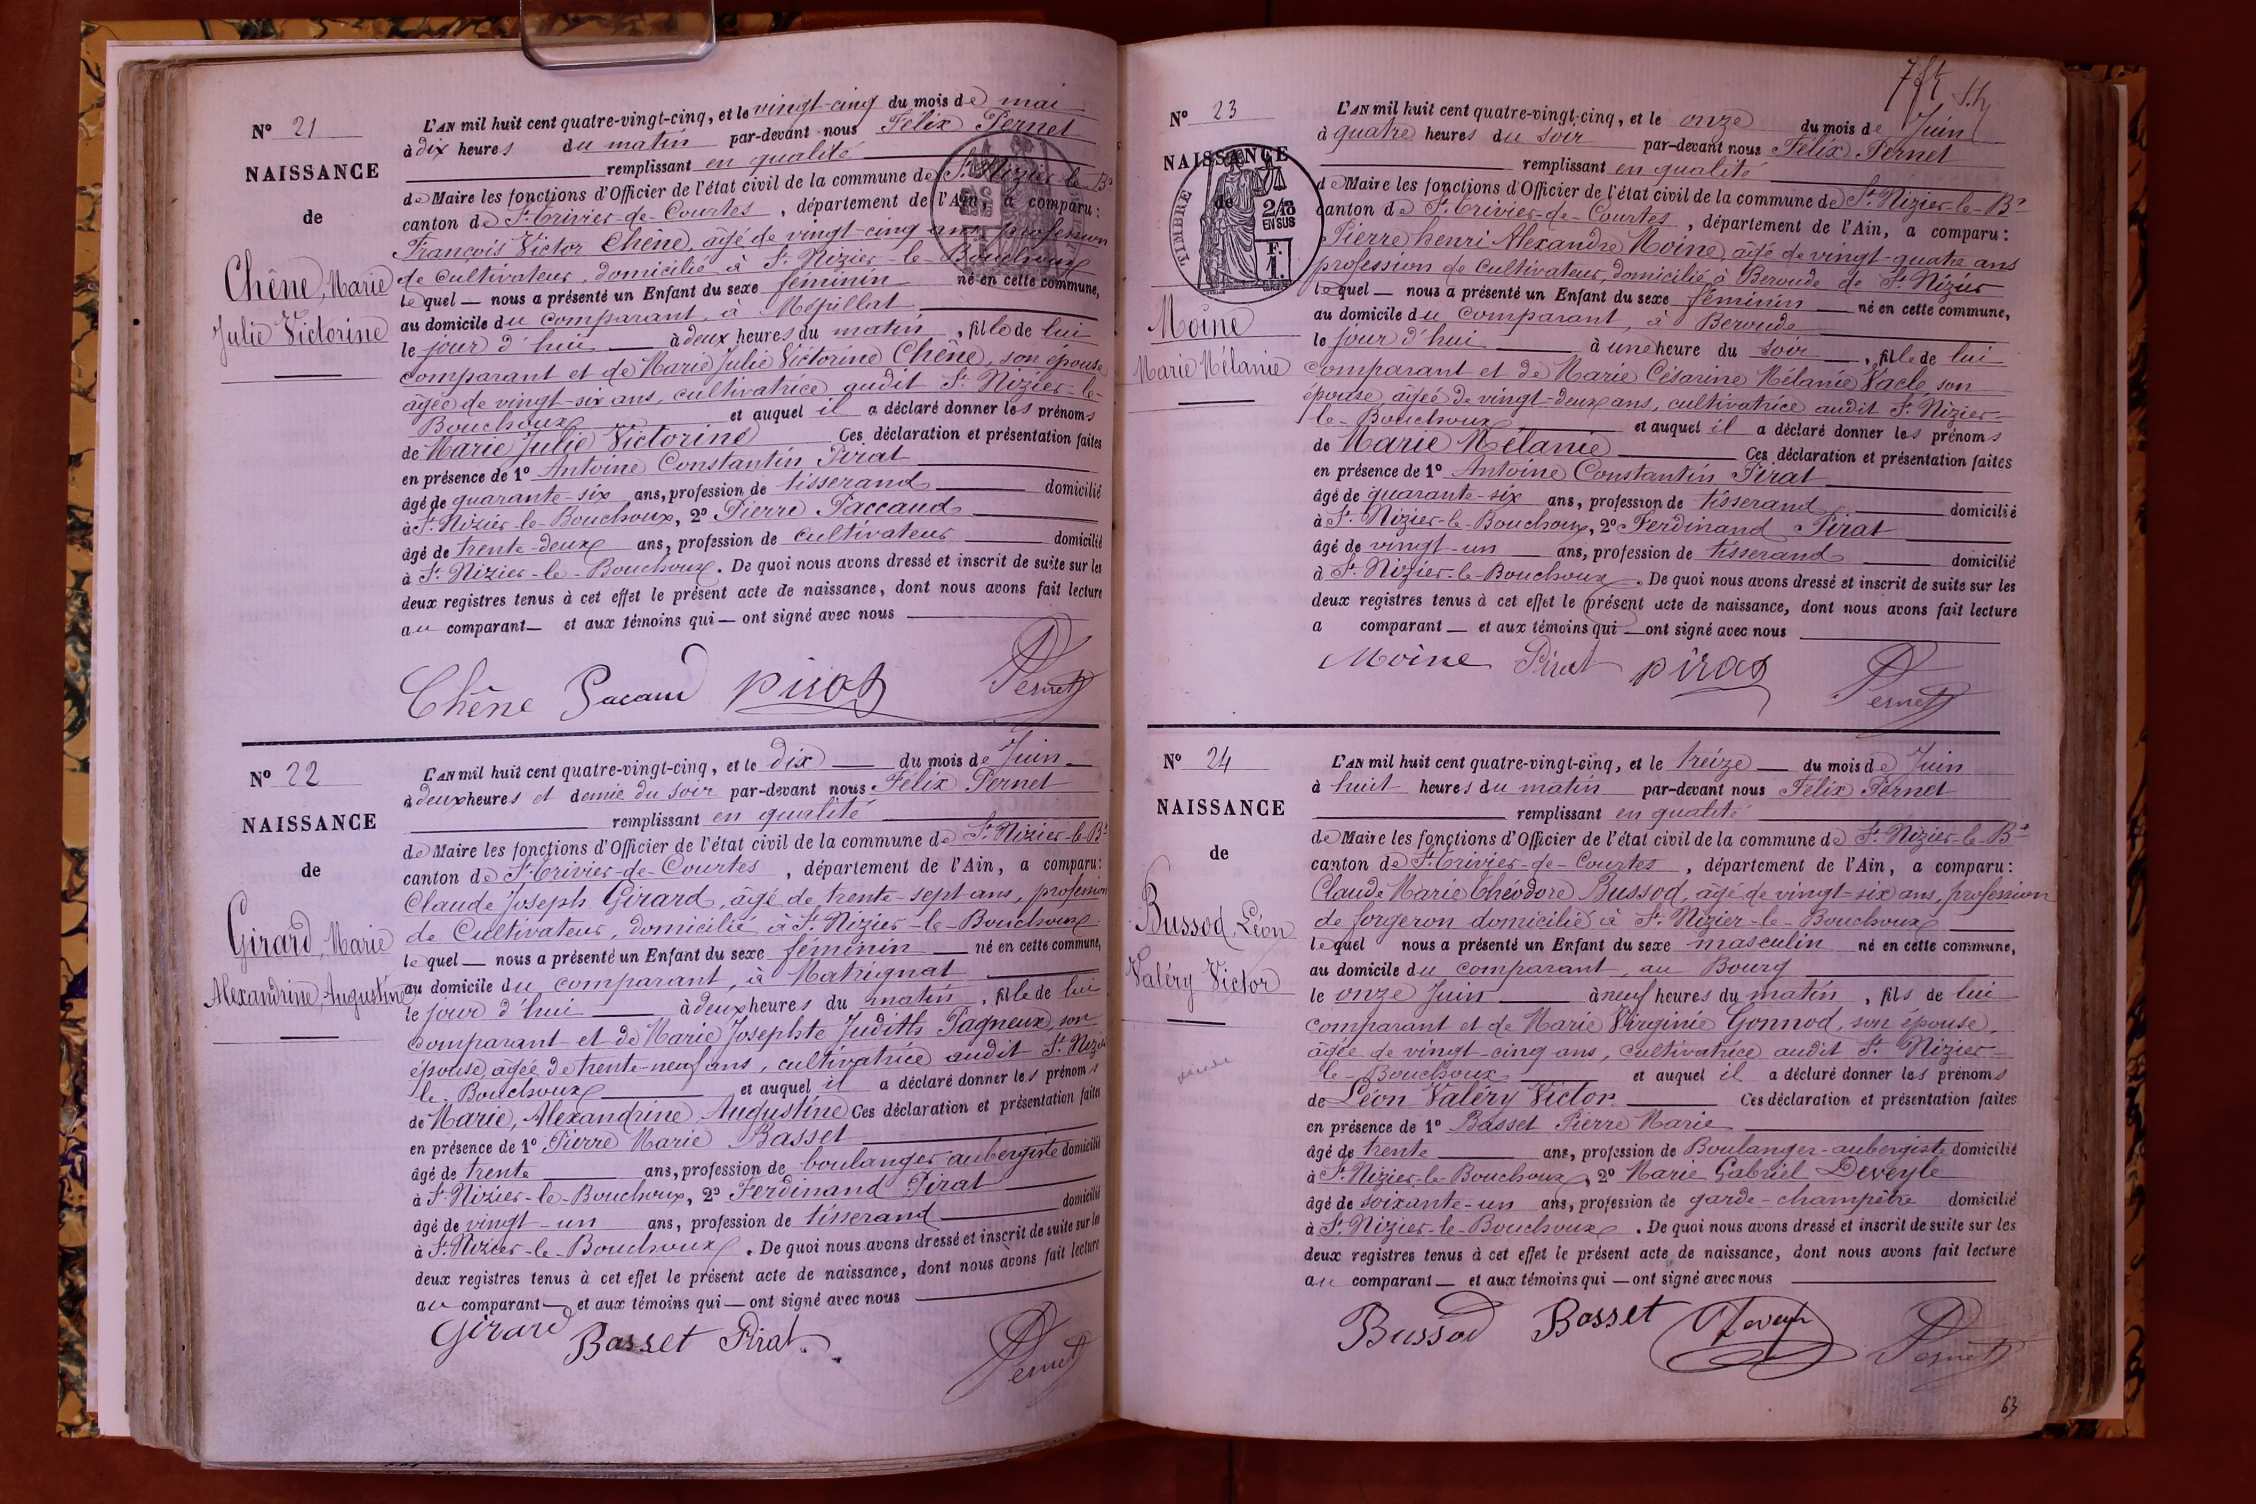 N° 21
NAISSANCE
de
Chêne, Marie
Julie Victorine
L'AN mil huit cent quatre-vingt-cinq, et le vingt-cinq du mois de mai
à dix heures du matin par-devant nous Félix Pernet
remplissant en qualité
de Maire les fonctions d'Officier de l'état civil de la commune de St. Nizier-le-Bx
canton de St. Trivier-de-Courtes, département de l'Ain, a comparu:
François Victor Chêne, âgé de vingt-cinq ans, profession
de Cultivateur, domicilié à St. Nizier-le-Bouchoux
lequel — nous a présenté un Enfant du sexe féminin né en cette commune,
au domicile du comparant, à
le jour d'hui à deux heures du matin, fille de lui
comparant et de Marie Julie Victorine Chêne, son épouse
âgée de vingt-six ans, cultivatrice audit St. Nizier-le-
Bouchoux et auquel il a déclaré donner les prénoms
de Marie Julie Victorine Ces déclaration et présentation faites
en présence de 1° Antoine Constantin Pirat
âgé de quarante-six ans, profession de tisserand domicilié
à St. Nizier-le-Bouchoux, 2° Pierre Paccaud
âgé de trente-deux ans, profession de cultivateur domicilié
à St. Nizier-le-Bouchoux. De quoi nous avons dressé et inscrit de suite sur les
deux registres tenus à cet effet le présent acte de naissance, dont nous avons fait lecture
au comparant — et aux témoins qui — ont signé avec nous
Chêne Pacaud Pirat Pernet
N° 22
NAISSANCE
de
Girard, Marie
Alexandrine, Augustine
L'AN mil huit cent quatre-vingt-cinq, et le dix du mois de Juin
à deux heures et demie du soir par-devant nous Félix Pernet
remplissant en qualité
de Maire les fonctions d'Officier de l'état civil de la commune de St. Nizier-le-Bx
canton de St. Trivier-de-Courtes, département de l'Ain, a comparu:
Claude Joseph Girard, âgé de trente-sept ans, profession
de Cultivateur, domicilié à St. Nizier-le-Bouchoux
lequel — nous a présenté un Enfant du sexe féminin né en cette commune,
au domicile du comparant, à Matrignat
le jour d'hui à deux heures du matin, fille de lui
comparant et de Marie Josephte Judith Pagneux, son
épouse, âgée de trente-neuf ans, cultivatrice audit St. Nizier
le-Bouchoux et auquel il a déclaré donner les prénoms
de Marie, Alexandrine, Augustine Ces déclaration et présentation faites
en présence de 1° Pierre Marie Basset
âgé de trente ans, profession de boulanger aubergiste domicilié
à St. Nizier-le-Bouchoux, 2° Ferdinand Pirat
âgé de vingt-un ans, profession de tisserand domicilié
à St. Nizier-le-Bouchoux. De quoi nous avons dressé et inscrit de suite sur les
deux registres tenus à cet effet le présent acte de naissance, dont nous avons fait lecture
au comparant — et aux témoins qui — ont signé avec nous
Girard Basset Pirat Pernet
N° 23
NAISSANCE
de
TIMBRE
2/10
EN SUS
F.
1.
Moine
Marie Mélanie
L'AN mil huit cent quatre-vingt-cinq, et le onze du mois de Juin
à quatre heures du soir par-devant nous Félix Pernet
remplissant en qualité
de Maire les fonctions d'Officier de l'état civil de la commune de St. Nizier-le-Bx
canton de St. Trivier-de-Courtes, département de l'Ain, a comparu:
Pierre henri Alexandre Moine, âgé de vingt-quatre ans
profession de cultivateur, domicilié à Beroude de St. Nizier
lequel — nous a présenté un Enfant du sexe féminin né en cette commune,
au domicile du comparant, à Beroude
le jour d'hui à une heure du soir, fille de lui
comparant et de Marie Césarine Mélanie Vacle, son
épouse, âgée de vingt-deux ans, cultivatrice audit St. Nizier-
le-Bouchoux et auquel il a déclaré donner les prénoms
de Marie Mélanie Ces déclaration et présentation faites
en présence de 1° Antoine Constantin Pirat
âgé de quarante-six ans, profession de tisserand domicilié
à St. Nizier-le-Bouchoux, 2° Ferdinand Pirat
âgé de vingt-un ans, profession de tisserand domicilié
à St. Nizier-le-Bouchoux. De quoi nous avons dressé et inscrit de suite sur les
deux registres tenus à cet effet le présent acte de naissance, dont nous avons fait lecture
a comparant — et aux témoins qui — ont signé avec nous
Moine Pirat Pirat Pernet
N° 24
NAISSANCE
de
Bussod, Léon
Valéry Victor
L'AN mil huit cent quatre-vingt-cinq, et le treize du mois de Juin
à huit heures du matin par-devant nous Félix Pernet
remplissant en qualité
de Maire les fonctions d'Officier de l'état civil de la commune de St. Nizier-le-Bx
canton de St. Trivier-de-Courtes, département de l'Ain, a comparu:
Claude Marie Théodore Bussod, âgé de vingt-six ans, profession
de forgeron domicilié à St. Nizier-le-Bouchoux
lequel nous a présenté un Enfant du sexe masculin né en cette commune,
au domicile du comparant, au Bourg
le onze Juin à neuf heures du matin, fils de lui
comparant et de Marie Virginie Gonnod, son épouse,
âgée de vingt-cinq ans, cultivatrice audit St. Nizier-
le-Bouchoux et auquel il a déclaré donner les prénoms
de Léon Valéry Victor. Ces déclaration et présentation faites
en présence de 1° Basset Pierre Marie
âgé de trente ans, profession de Boulanger-aubergiste domicilié
à St. Nizier-le-Bouchoux, 2° Marie Gabriel Deveyle
âgé de soixante-un ans, profession de garde-champêtre domicilié
à St. Nizier-le-Bouchoux. De quoi nous avons dressé et inscrit de suite sur les
deux registres tenus à cet effet le présent acte de naissance, dont nous avons fait lecture
au comparant — et aux témoins qui — ont signé avec nous
Bussod Basset Deveyle Pernet
63